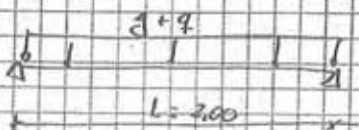 g + q
L = 3,00